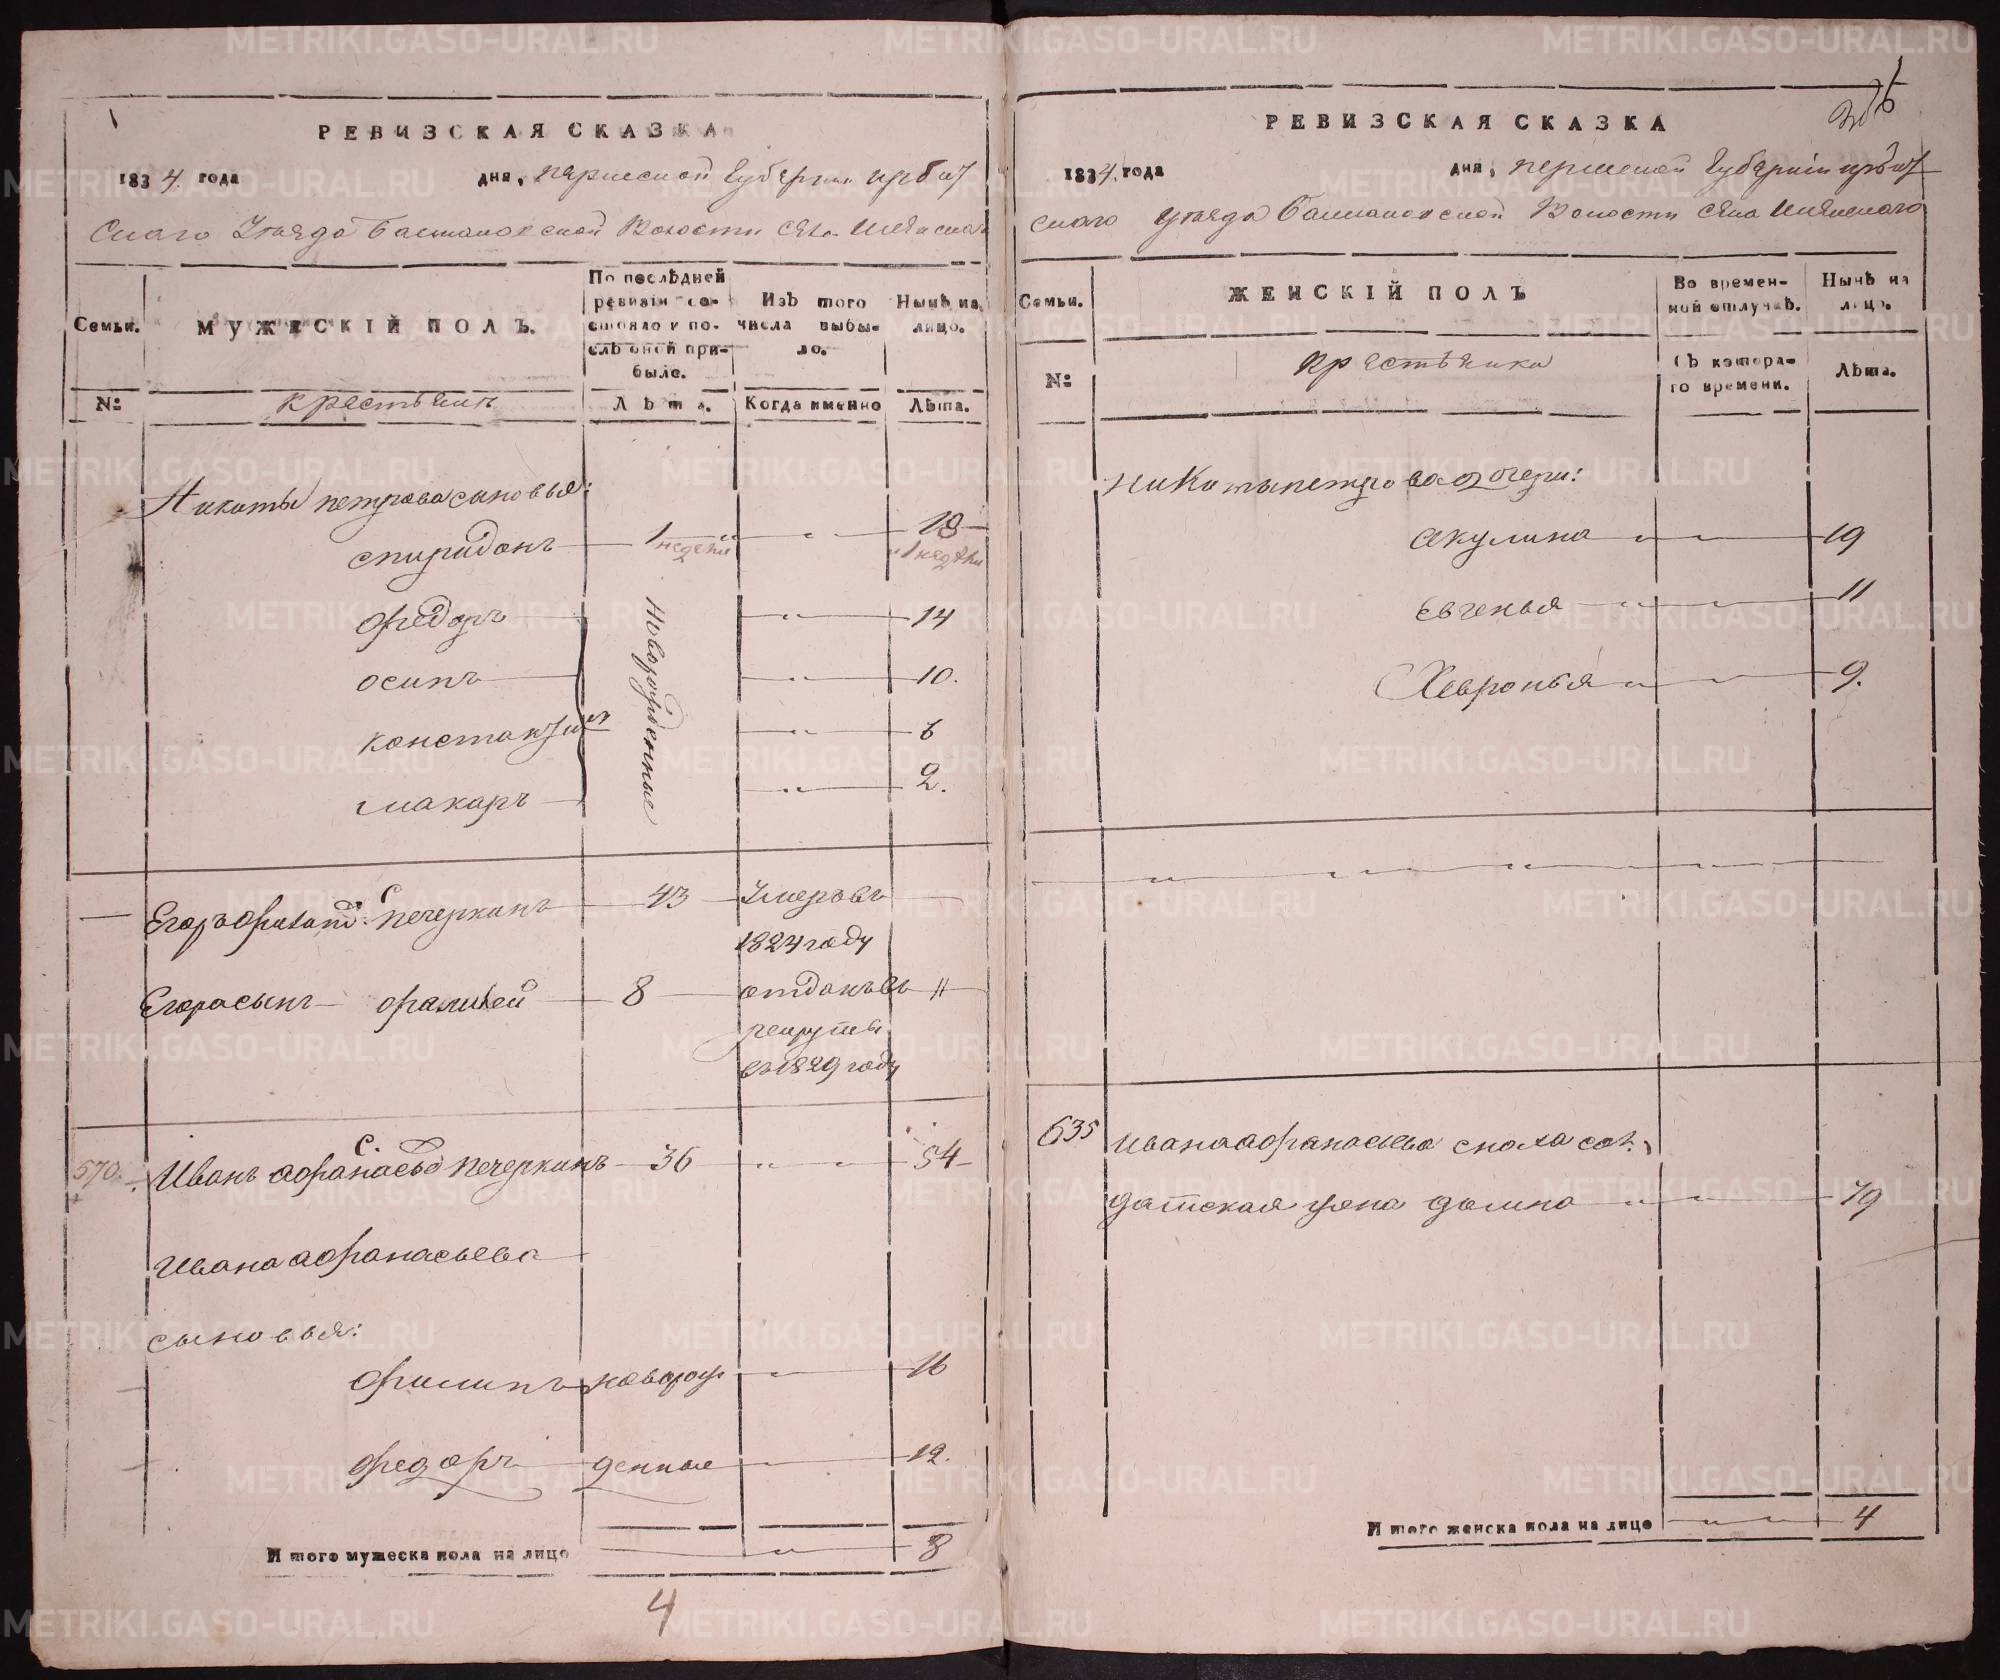 РЕВИЗСКАЯ СКАЗКА
1834. года дня, Пермской Губернии Ирбит
скаго Уезда Башмаковской Волости села
Семьи.
МУЖЕСКІЙ ПОЛЪ.
По послѣдней ревизіи со-
стояло и по-
слѣ оной при-
было.
Изъ того
числа выбы-
ло.
Нынѣ на
лицо.
№:
крестьянъ
Лѣта.
Когда именно
Лѣта.
Никиты петрова сыновья:
спиридонъ 1 недели " " 18 1 недѣли
федоръ " 14
осипъ " 10.
константинъ " 6
макаръ " 2.
новорожденные
Егоръ С. печеркинъ 43 Умеръ въ
1824 году
Егора сынъ 8 отданъ въ "
рекруты
въ 1829 году
570. Иванъ афанасьевъ С. печеркинъ 36 " " 54
Ивана афанасьева
сыновья:
филипъ новорож " 16
федоръ денные 12.
Итого мужеска пола на лицо " 8
4
РЕВИЗСКАЯ СКАЗКА
1834. года дня, пермской Губерніи ирбит
скаго уезда Башмаковской Волости села
Семьи.
ЖЕНСКІЙ ПОЛЪ
Во времен-
ной отлучкѣ.
Нынѣ на
лицо.
№:
крестьянки
Съ котора-
го времени.
Лѣта.
никиты петрова дочери:
акулина " " 19
Евгенья " " 11
Хевронья " " 9.
" " " " "
635 ивана афанасьева сноха сол
датская жена домна " " 19
Итого женска пола на лице " " 4
METRIKI.GASO-URAL.RU